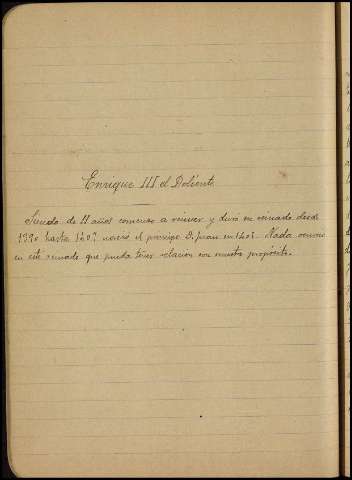 Enrique III el Doliente
Siendo de 11 años comenzo a reinar y duró su reinado desde
1390 hasta 1407 nació el principe D. Juan en 1405. Nada ocurrio
en este reinado que pueda tener relacion con nuestro propósito.